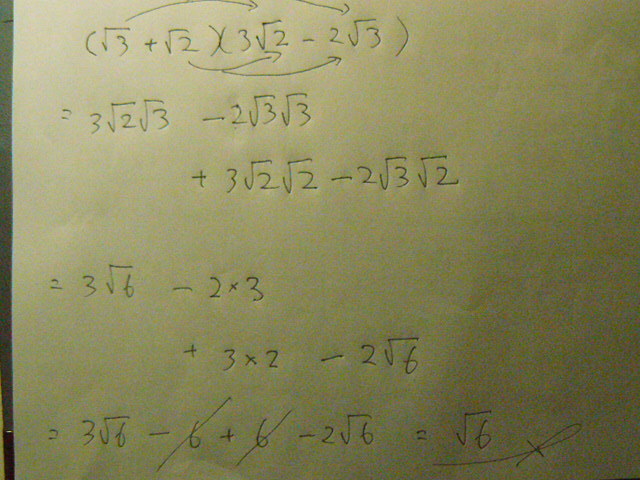 (√3 + √2)(3√2 - 2√3)
= 3√2√3 - 2√3√3
+ 3√2√2 - 2√3√2
= 3√6 - 2×3
+ 3×2 - 2√6
= 3√6 - 6 + 6 - 2√6 = √6